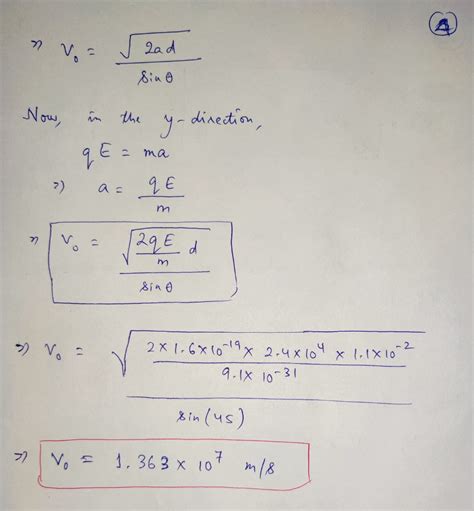 4
=> V₀ = √(2ad) / sin θ
Now, in the y-direction,
qE = ma
=> a = qE / m
=> V₀ = √((2qE / m) d) / sin θ
=> V₀ = √((2 × 1.6 × 10⁻¹⁹ × 2.4 × 10⁴ × 1.1 × 10⁻²) / (9.1 × 10⁻³¹)) / sin (45)
=> V₀ = 1.363 × 10⁷ m/s